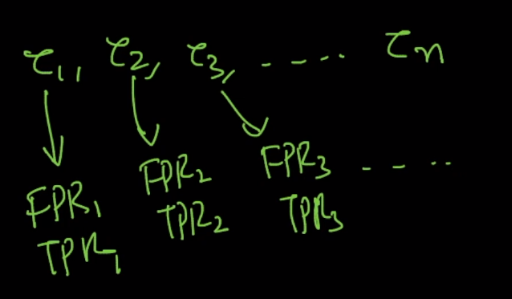 τ₁, τ₂, τ₃, ---- τₙ
FPR₁ FPR₂ FPR₃ ----
TPR₁ TPR₂ TPR₃